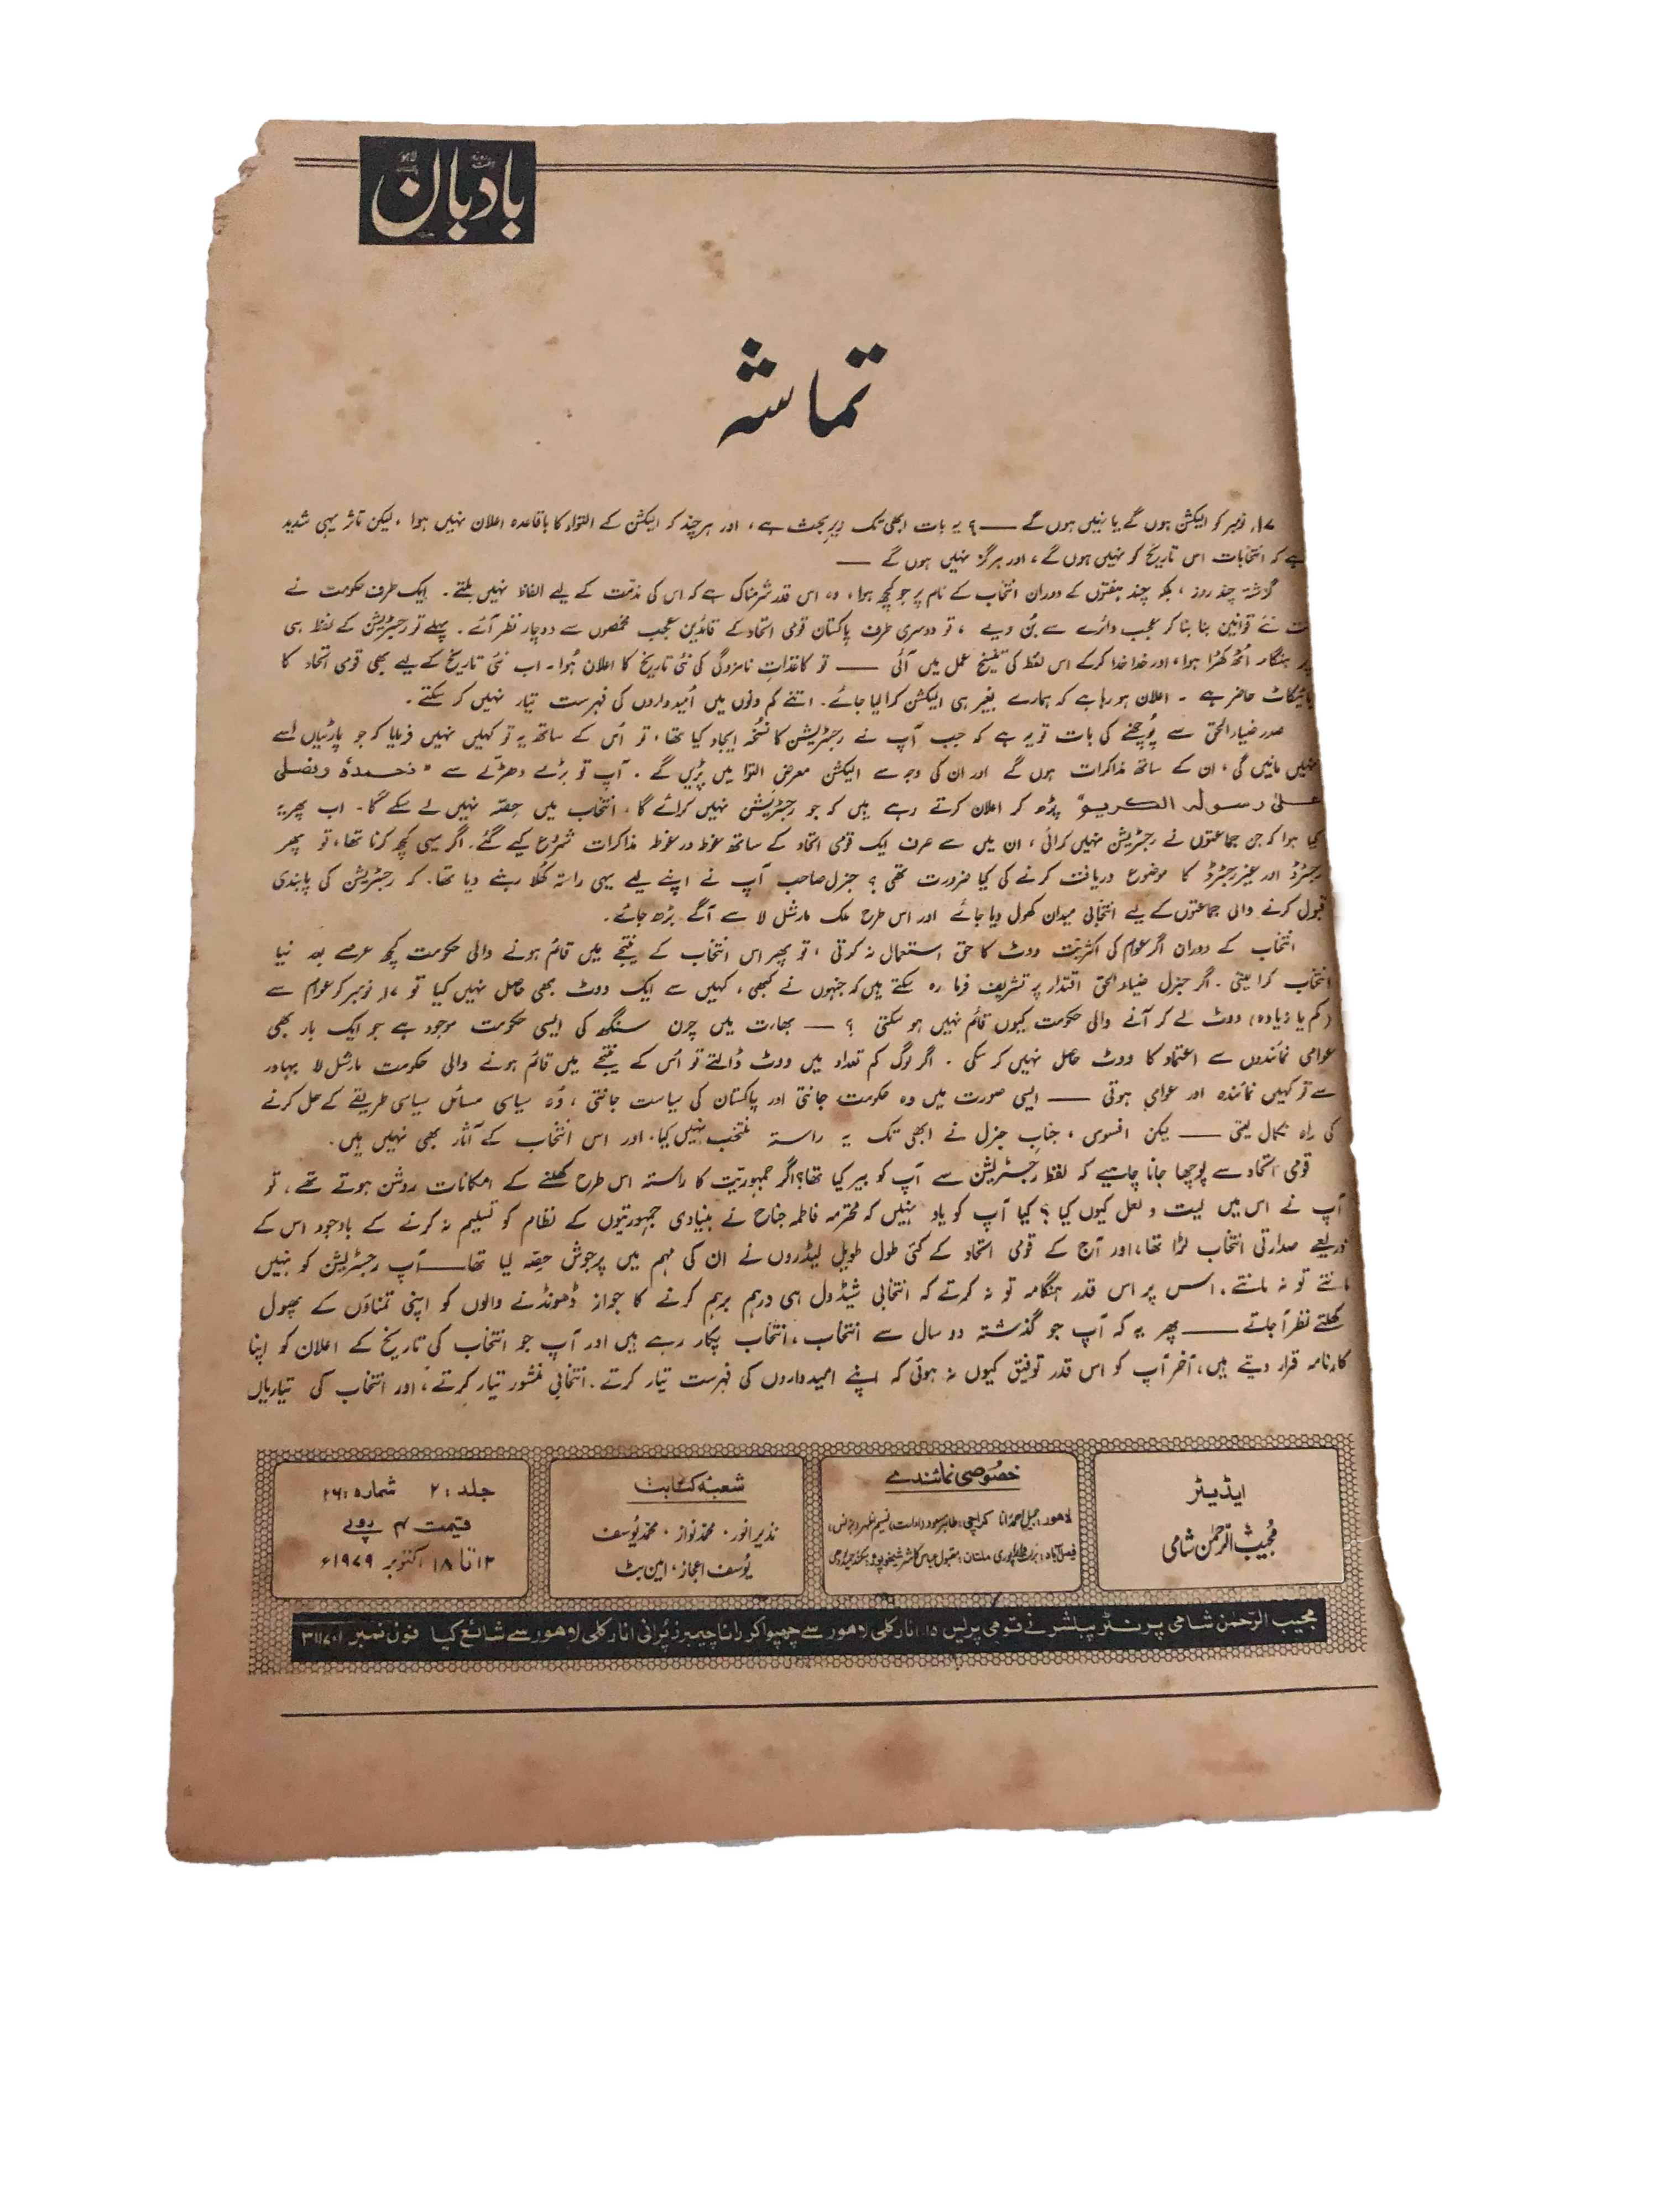 ہفت روزہ بادبان لاہور
تماشہ
۱۷ نومبر کو الیکشن ہوں گے یا نہیں ہوں گے —— ؟ یہ بات ابھی تک زیرِ بحث ہے، اور ہر چند کہ الیکشن کے التواء کا باقاعدہ اعلان نہیں ہوا، لیکن تاثر یہی شدید
ہے کہ انتخابات اس تاریخ کو نہیں ہوں گے، اور ہرگز نہیں ہوں گے ——
گزشتہ چند روز، بلکہ چند ہفتوں کے دوران انتخاب کے نام پر جو کچھ ہوا، وہ اس قدر شرمناک ہے کہ اس کی مذمّت کے لیے الفاظ نہیں ملتے۔ ایک طرف حکومت نے
نت نئے قوانین بنا بنا کر عجب دائرے سے بُن دیے، تو دوسری طرف پاکستان قومی اتحاد کے قائدین عجب مخمصوں سے دوچار نظر آئے۔ پہلے تو رجسٹریشن کے لفظ ہی
پر ہنگامہ اُٹھ کھڑا ہوا، اور خدا خدا کرکے اس لفظ کی تنسیخ عمل میں آئی —— تو کاغذاتِ نامزدگی کی نئی تاریخ کا اعلان ہُوا۔ اب نئی تاریخ کے لیے بھی قومی اتحاد کا
بائیکاٹ حاضر ہے ۔ اعلان ہو رہا ہے کہ ہمارے بغیر ہی الیکشن کرا لیا جائے۔ اتنے کم دنوں میں اُمیدواروں کی فہرست تیار نہیں کر سکتے۔
صدر ضیاء الحق سے پُوچھنے کی بات تو یہ ہے کہ جب آپ نے رجسٹریشن کا نُسخہ ایجاد کیا تھا، تو اُس کے ساتھ یہ تو کہیں نہیں فرمایا کہ جو پارٹیاں اسے
نہیں مانیں گی، ان کے ساتھ مذاکرات ہوں گے اور ان کی وجہ سے الیکشن معرضِ التوا میں پڑیں گے۔ آپ تو بڑے دھڑلّے سے "نحمدہٗ ونصلی
علیٰ رسولہ الکریم" پڑھ کر اعلان کرتے رہے ہیں کہ جو رجسٹریشن نہیں کرائے گا، انتخاب میں حِصّہ نہیں لے سکے گا۔ اب پھر یہ
کیا ہوا کہ جن جماعتوں نے رجسٹریشن نہیں کرائی، ان میں سے صرف ایک قومی اتحاد کے ساتھ غوطہ در غوطہ مذاکرات شروع کیے گئے۔ اگر یہی کچھ کرنا تھا، تو پھر
رجسٹرڈ اور غیر رجسٹرڈ کا موضوع دریافت کرنے کی کیا ضرورت تھی؟ جنرل صاحب آپ نے اپنے لیے یہی راستہ کُھلا رہنے دیا تھا۔ کہ رجسٹریشن کی پابندی
قبول کرنے والی جماعتوں کے لیے انتخابی میدان کھول دیا جائے اور اس طرح ملک مارشل لا سے آگے بڑھ جائے۔
انتخاب کے دوران اگر عوام کی اکثریت ووٹ کا حق استعمال نہ کرتی، تو پھر اس انتخاب کے نتیجے میں قائم ہونے والی حکومت کچھ عرصے بعد نیا
انتخاب کرا لیتی۔ اگر جنرل ضیاء الحق اقتدار پر تشریف فرما رہ سکتے ہیں کہ جنہوں نے کبھی، کہیں سے ایک ووٹ بھی حاصل نہیں کیا تو ۱۷ نومبر کو عوام سے
(کم یا زیادہ) ووٹ لے کر آنے والی حکومت کیوں قائم نہیں ہو سکتی ؟ — بھارت میں چرن سنگھ کی ایسی حکومت موجود ہے جو ایک بار بھی
عوامی نمائندوں سے اعتماد کا ووٹ حاصل نہیں کر سکی۔ اگر لوگ کم تعداد میں ووٹ ڈالتے تو اُس کے نتیجے میں قائم ہونے والی حکومت مارشل لا بہادر
سے تو کہیں نمائندہ اور عوامی ہوتی —— ایسی صورت میں وہ حکومت جانتی اور پاکستان کی سیاست جانتی، وُہ سیاسی مسائل سیاسی طریقے کے حل کرنے
کی راہ نکال لیتی —— لیکن افسوس، جنابِ جنرل نے ابھی تک یہ راستہ منتخب نہیں کیا۔ اور اس انتخاب کے آثار بھی نہیں ہیں۔
قومی اتحاد سے پوچھا جانا چاہیے کہ لفظ رجسٹریشن سے آپ کو بیر کیا تھا؟ اگر جمہوریّت کا راستہ اس طرح کھلنے کے امکانات روشن ہوتے تھے، تو
آپ نے اس میں لیت و لعل کیوں کیا؟ کیا آپ کو یاد نہیں کہ محترمہ فاطمہ جناح نے بنیادی جمہوریتوں کے نظام کو تسلیم نہ کرنے کے باوجود اس کے
ذریعے صدارتی انتخاب لڑا تھا، اور آج کے قومی اتحاد کے کئی طول طویل لیڈروں نے ان کی مہم میں پرجوش حِصّہ لیا تھا —— آپ رجسٹریشن کو نہیں
مانتے تو نہ مانتے۔ اس پر اس قدر ہنگامہ تو نہ کرتے کہ انتخابی شیڈول ہی درہم برہم کرنے کا جواز ڈھونڈنے والوں کو اپنی تمناؤں کے پھول
کھلتے نظر آ جاتے —— پھر یہ کہ آپ جو گذشتہ دو سال سے انتخاب، انتخاب پکار رہے ہیں اور آپ جو انتخاب کی تاریخ کے اعلان کو اپنا
کارنامہ قرار دیتے ہیں، آخر آپ کو اس قدر توفیق کیوں نہ ہوئی کہ اپنے امیدواروں کی فہرست تیار کرتے۔ انتخابی منشور تیار کرتے، اور انتخاب کی تیاریاں
ایڈیٹر
مُجیبُ الرّحمٰن شامی
خصُوصی نمائندے
لاہور: جمیل احمد رانا کراچی: طاہر مسعود
فیصل آباد: ملتان: مقبول عباس کاشر شیخوپورہ:
شعبۂ کتابت
نذیر انور • محمّد نواز • محمّد یُوسف
یُوسف اعجاز • امین بٹ
جلد: ۲ شمارہ: ۲۶
قیمت ۴ روپے
۱۲ تا ۱۸ اکتوبر ۱۹۷۹ء
مجیب الرّحمٰن شامی پرنٹر پبلشر نے قومی پریس ۱۵ انارکلی لاہور سے چھپوا کر رانا چیمبرز پُرانی انارکلی لاہور سے شائع کیا فون نمبر ۳۱۱۷۰۱